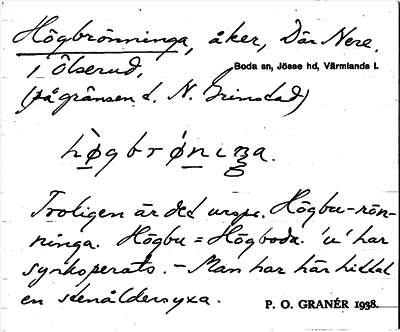 Högbrönninga, åker, Där Nere.
i Ölserud,
Boda sn, Jösse hd, Värmlands l.
(på gränsen t. N. Grinstad)
Troligen är det urspr. Högbu-rön-
ninga. Högbu = Högboda. 'u' har
synkoperats. - Man har här hittat
en stenåldersyxa.
P. O. GRANÉR 1938.